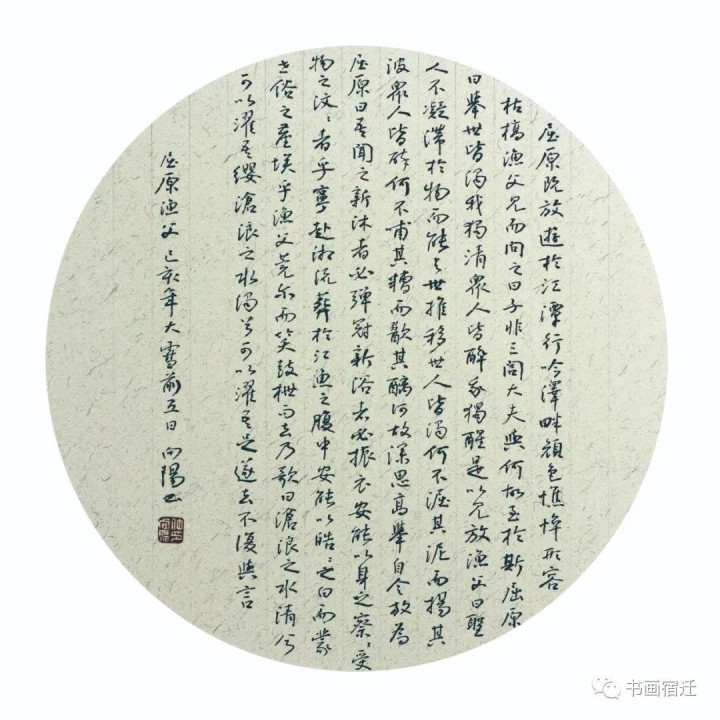 屈原既放遊於江潭行吟澤畔顏色憔悴形容
枯槁漁父見而問之曰子非三閭大夫與何故至於斯屈原
曰舉世皆濁我獨清眾人皆醉我獨醒是以見放漁父曰聖
人不凝滯於物而能与世推移世人皆濁何不淈其泥而揚其
波眾人皆醉何不甫其糟而歠其醨何故深思高舉自令放為
屈原曰吾聞之新沐者必彈冠新浴者必振衣安能以身之察〻受
物之汶〻者乎寧赴湘流葬於江漁之腹中安能以皓〻之白而蒙
世俗之塵埃乎漁父莞尔而笑鼓枻而去乃歌曰滄浪之水清兮
可以濯吾纓滄浪之水濁兮可以濯吾足遂去不復與言
屈原漁父 己亥年大雪前五日 向陽书
书画宿迁